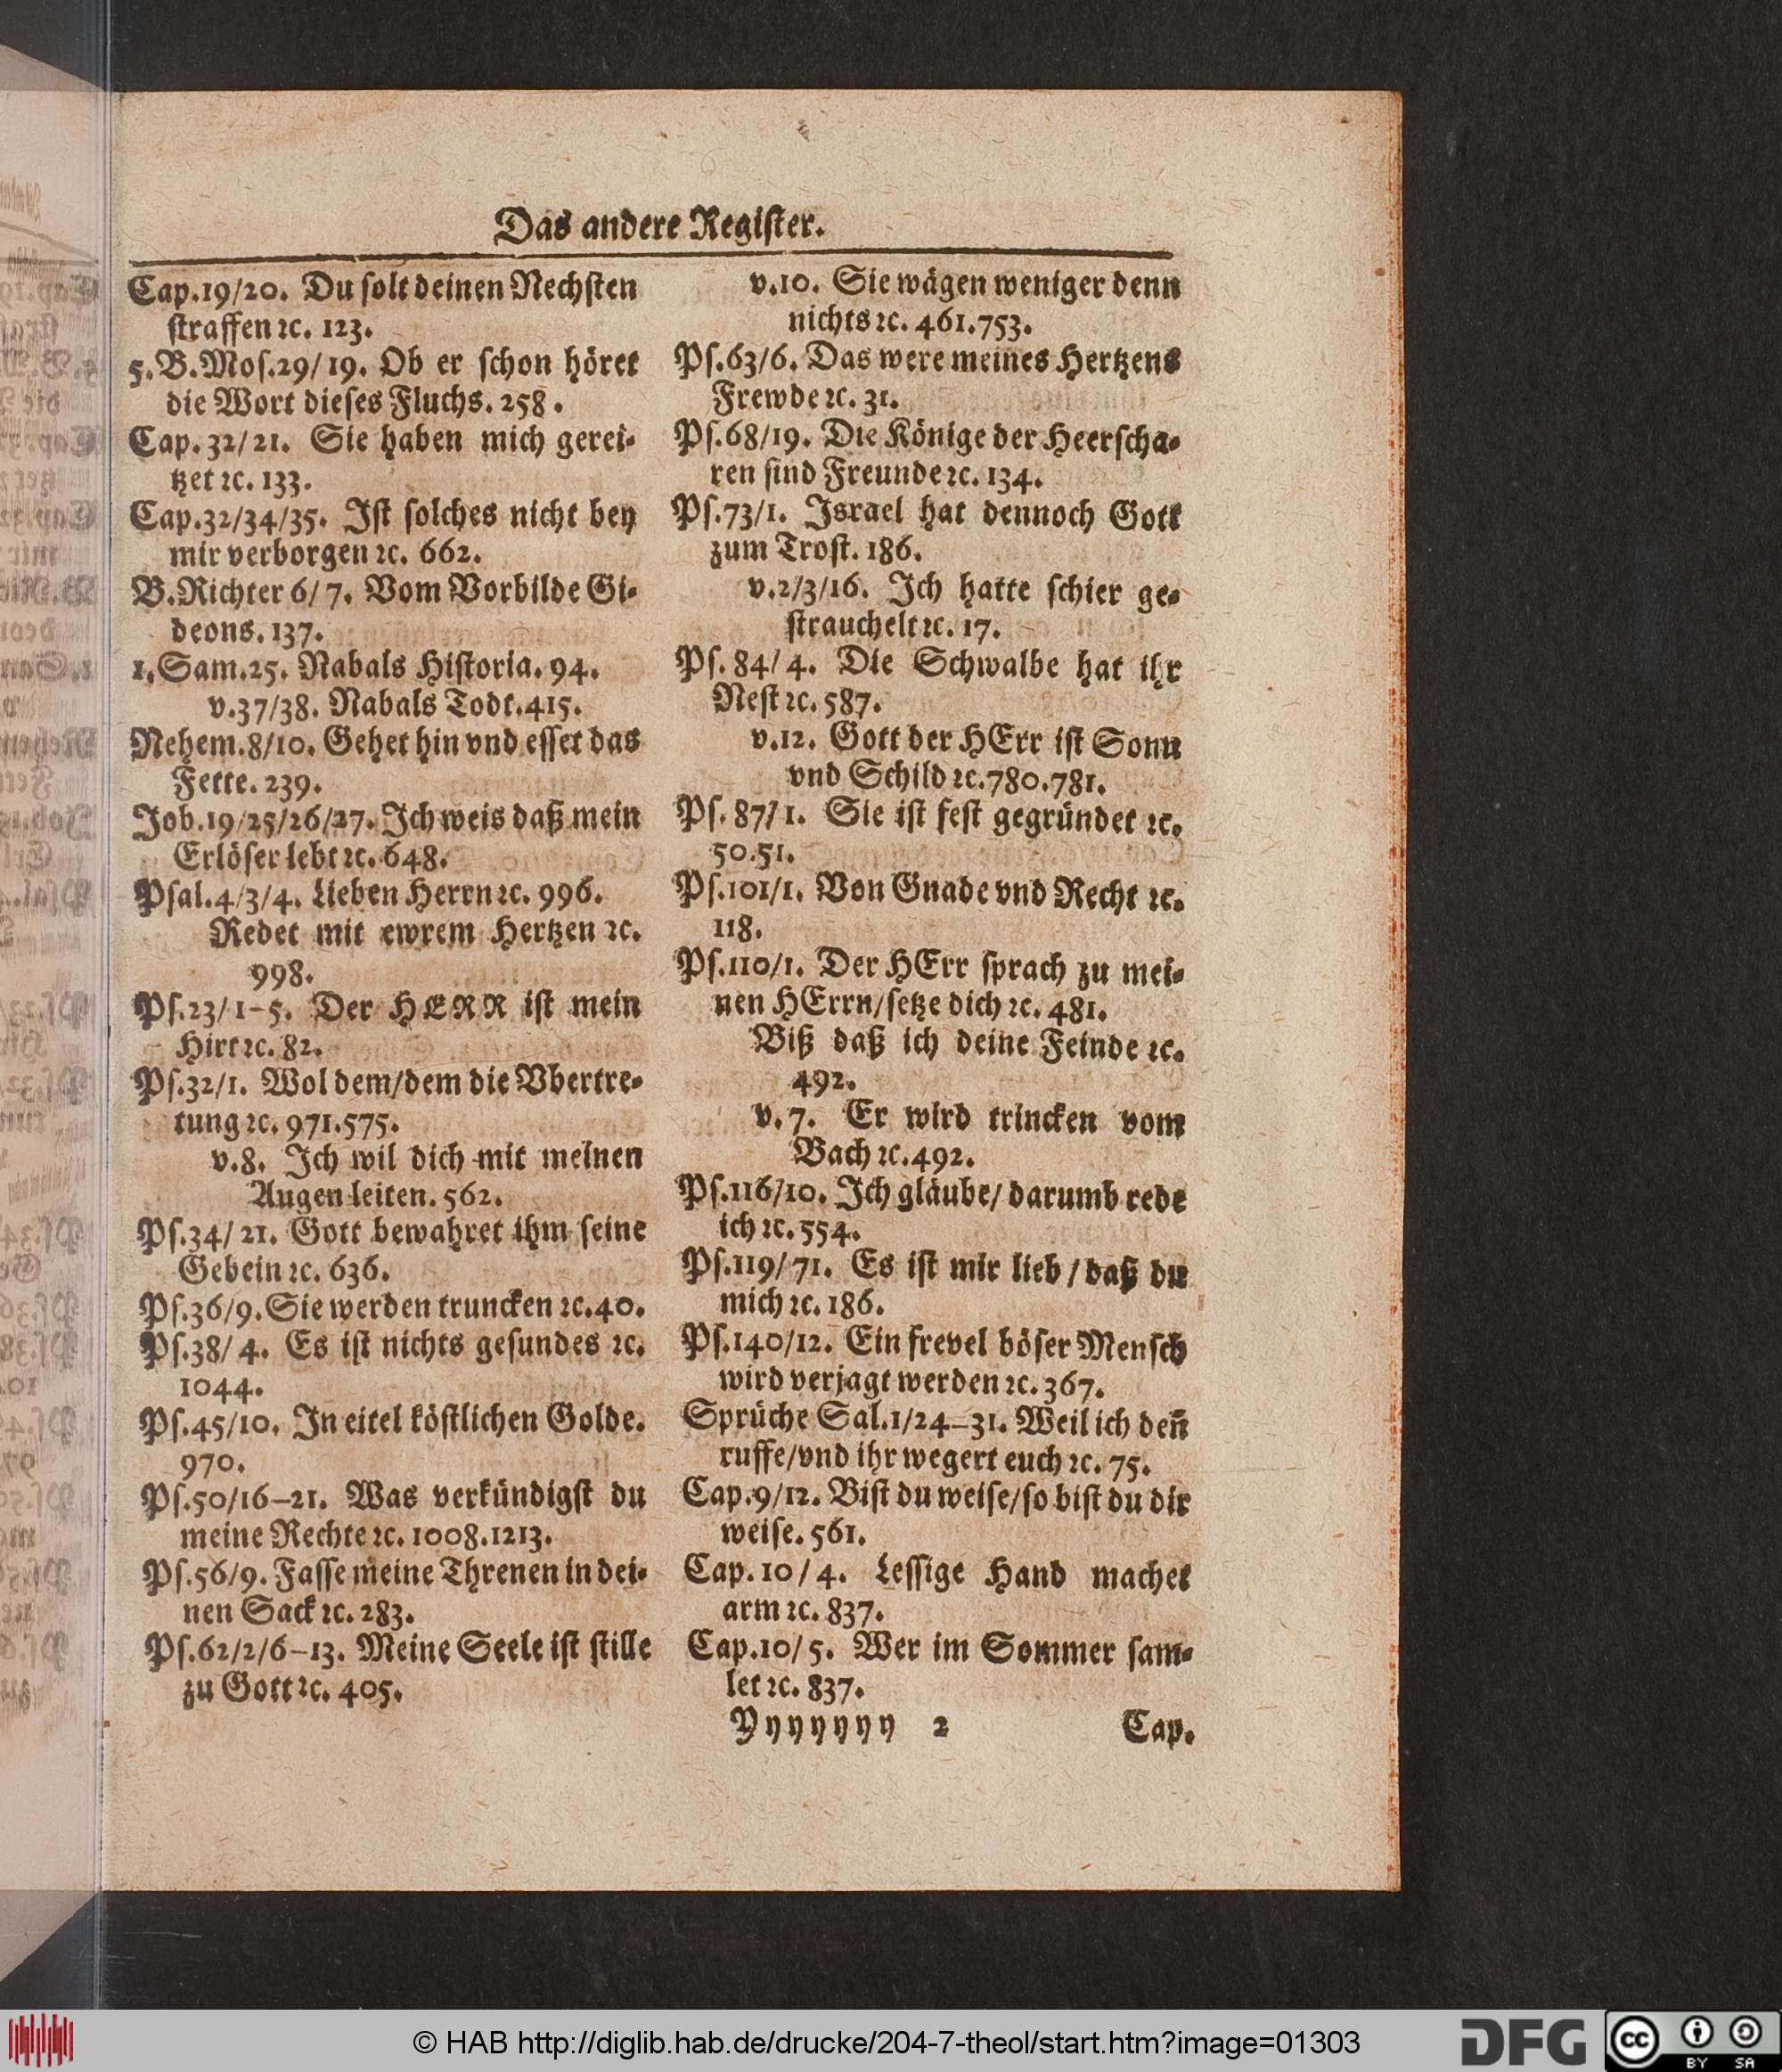 Das andere Regiſter.
Cap.19/20. Du ſolt deinen Nechſten
ſtraffen ꝛc. 123.
5.B.Moſ.29/19. Ob er ſchon höret
die Wort dieſes Fluchs. 258.
Cap. 32/21. Sie haben mich gerei-
tzet ꝛc. 133.
Cap.32/34/35. Iſt ſolches nicht bey
mir verborgen ꝛc. 662.
B.Richter 6/7. Vom Vorbilde Gi-
deons. 137.
1.Sam.25. Nabals Hiſtoria. 94.
v.37/38. Nabals Todt.415.
Nehem.8/10. Gehet hin vnd eſſet das
Fette. 239.
Job.19/25/26/27. Ich weis daß mein
Erlöſer lebt ꝛc. 648.
Pſal.4/3/4. Lieben Herrn ꝛc. 996.
Redet mit ewrem Hertzen ꝛc.
998.
Pſ.23/1-5. Der HERR iſt mein
Hirt ꝛc. 82.
Pſ.32/1. Wol dem/dem die Vbertre-
tung ꝛc. 971.575.
v.8. Ich wil dich mit meinen
Augen leiten. 562.
Pſ.34/21. Gott bewahret ihm ſeine
Gebein ꝛc. 636.
Pſ.36/9. Sie werden truncken ꝛc.40.
Pſ.38/4. Es iſt nichts geſundes ꝛc.
1044.
Pſ.45/10. In eitel köſtlichen Golde.
970.
Pſ.50/16-21. Was verkündigſt du
meine Rechte ꝛc. 1008.1213.
Pſ.56/9. Faſſe meine Threnen in dei-
nen Sack ꝛc. 283.
Pſ.62/2/6-13. Meine Seele iſt ſtille
zu Gott ꝛc. 405.
v.10. Sie wägen weniger denn
nichts ꝛc. 461.753.
Pſ.63/6. Das were meines Hertzens
Frewde ꝛc. 31.
Pſ.68/19. Die Könige der Heerſcha-
ren ſind Freunde ꝛc. 134.
Pſ.73/1. Israel hat dennoch Gott
zum Troſt. 186.
v.2/3/16. Ich hatte ſchier ge-
ſtrauchelt ꝛc. 17.
Pſ.84/4. Die Schwalbe hat ihr
Neſt ꝛc. 587.
v.12. Gott der HErr iſt Sonn
vnd Schild ꝛc.780.781.
Pſ.87/1. Sie iſt feſt gegründet ꝛc.
50.51.
Pſ.101/1. Von Gnade vnd Recht ꝛc.
118.
Pſ.110/1. Der HErr ſprach zu mei-
nen HErrn/ſetze dich ꝛc. 481.
Biß daß ich deine Feinde ꝛc.
492.
v.7. Er wird trincken vom
Bach ꝛc.492.
Pſ.116/10. Ich gläube/ darumb rede
ich ꝛc. 554.
Pſ.119/71. Es iſt mir lieb / daß du
mich ꝛc. 186.
Pſ.140/12. Ein frevel böſer Menſch
wird verjagt werden ꝛc. 367.
Sprüche Sal.1/24-31. Weil ich deñ
ruffe/vnd ihr wegert euch ꝛc. 75.
Cap.9/12. Biſt du weiſe/ſo biſt du dir
weiſe. 561.
Cap.10/4. Leſſige Hand machet
arm ꝛc. 837.
Cap.10/5. Wer im Sommer ſam-
let ꝛc. 837.
Yyyyyyy 2 Cap.
© HAB http://diglib.hab.de/drucke/204-7-theol/start.htm?image=01303
DFG
cc BY SA